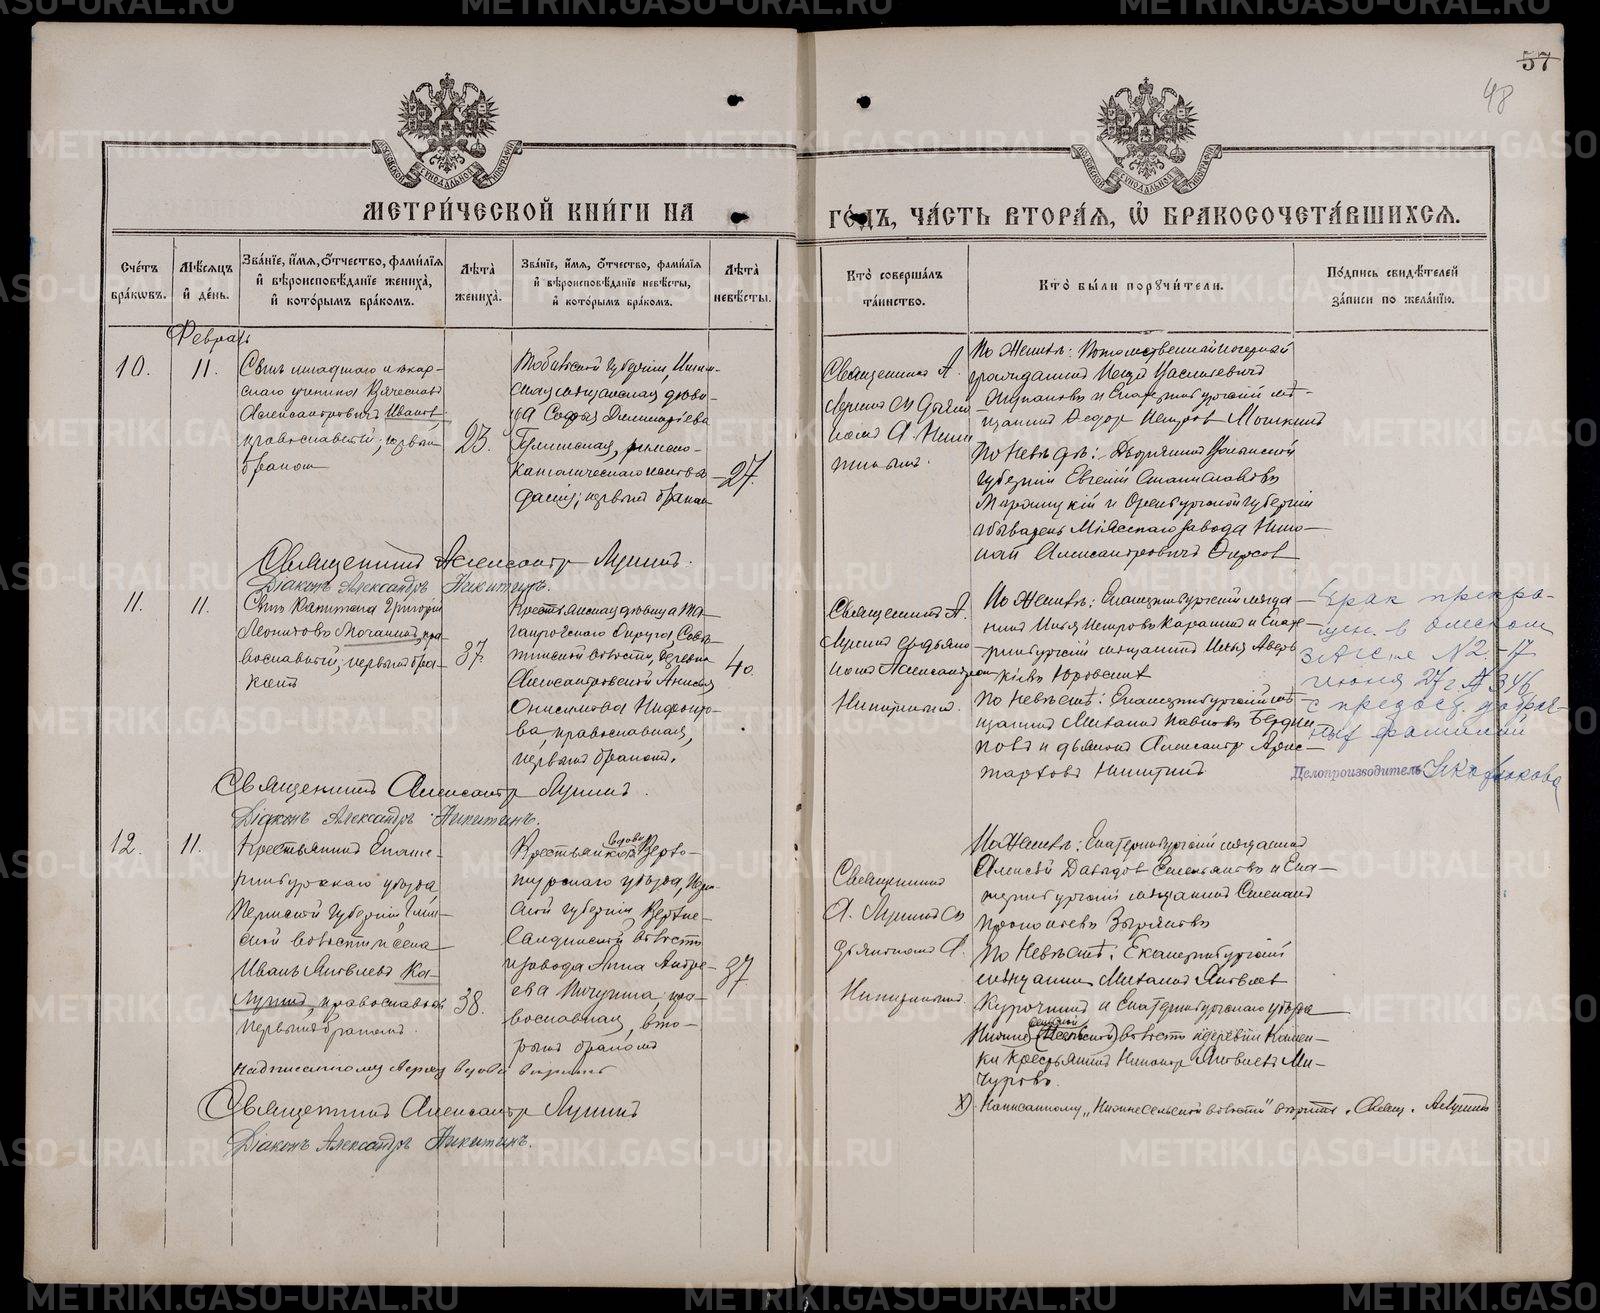 57
48
МЕТРИ́ЧЕСКОЙ КНИ́ГИ НА
ГО́ДЪ, ЧА́СТЬ ВТОРА́Я, Ѡ҆ БРАКОСОЧЕТА́ВШИХСЯ.
Сче́тъ бра́кѡвъ.
Мѣ́сяцъ и҆ де́нь.
Зва́нїе, и҆́мя, ѻ҆́тчество, фамі́лїя и҆ вѣроисповѣ́данїе жениха̀, и҆ кото́рымъ бра́комъ.
Лѣ́та жениха̀.
Зва́нїе, и҆́мя, ѻ҆́тчество, фамі́лїя и҆ вѣроисповѣ́данїе невѣ́сты, и҆ кото́рымъ бра́комъ.
Лѣ́та невѣ́сты.
Кто̀ соверша́лъ та́инство.
Кто̀ бы́ли порꙋчи́тели.
По́дпись свидѣ́телей за́писи по жела́нїю.
Февраль
10.
11.
Сынъ младшаго лекар-
скаго ученика Вячеславъ
Александровичъ Ивановъ
православный, первым
бракомъ
23.
Тобольской губерніи, Ишим-
ская мѣщанская дѣви-
ца Софья Диминтріева
римско-
католическаго исповѣ
данія, первымъ бракам
27.
Священникъ А.
Лукинъ съ діако-
номъ А. Ники
тинымъ.
По Женихѣ: Потомственный почетный
гражданинъ Петръ Васильевичъ
и Екатеринбургскій мѣ-
щанинъ Федоръ Петровъ Мошкинъ
По Невѣстѣ: Дворянинъ
губерніи Евгеній Станиславовъ
и Оренбургской губерніи
обыватель Міясскаго завода Нико-
лай Александровичъ Фирсов
Священникъ Александръ Лукинъ.
Діаконъ Александръ Никитинъ.
11.
11.
Сынъ Капитана Григорій
Леонтовъ Мочалинъ, пра-
вославный, первымъ бра-
комъ
37.
Крестьянская дѣвица Та-
ганрогскаго Округа
волости, деревни
Александровской Анисья
Онисимова Никоно-
ва, православная,
первымъ бракомъ.
40.
Священникъ А.
Лукинъ съ діако-
номъ Александром
Никитиным.
По Женихѣ: Екатеринбургскій мѣща-
нинъ Илья Петровъ и Екате-
ринбургскій мѣщанинъ Илья Авер
кіевъ Юровскихъ
По Невѣстѣ: Екатеринбургскій мѣ-
щанинъ Михаилъ Павловъ Бердни
ковъ и діаконъ Александръ Арис-
тарховъ Никитинъ
Брак прекра-
щен в Омском
ЗАГСе N 2-17
июня 27 г. N 346
с предост. добрач-
ных фамилий
Делопроизводитель
Священникъ Александръ Лукинъ.
Діаконъ Александръ Никитинъ.
12.
11.
Крестьянинъ Екате-
ринбургскаго уѣзда,
Пермской губерніи
волости и села
Иванъ Яковлевъ Ка-
лугинъ, православный
первымъ бракомъ.
38.
Крестьянская вдова Верхо-
турскаго уѣзда, Перм-
ской губерніи, Верхне-
Салдинской волости
и завода Анна Андре-
ева Пичугина, пра-
вославная, вто-
рымъ бракомъ
37.
Священникъ
А. Лукинъ съ
діакономъ А.
Никитинымъ.
По Женихѣ: Екатеринбургскій мѣщанинъ
Алексѣй Давыдовъ и Ека-
теринбургскій мѣщанинъ Степанъ
Прокопьевъ Зыряновъ
По Невѣстѣ: Екатеринбургскій
мѣщанинъ Михаилъ Яковлевъ
Курочкинъ и Екатеринбургскаго уѣзда
волости и деревни
крестьянинъ Никаноръ Яковлевъ Ми-
чуровъ.
надписанному вдова вѣрить
Х). Написанному „Нижнесельской волости" вѣрить. Свящ. А. Лукинъ
Священникъ Александръ Лукинъ
Діаконъ Александръ Никитинъ.
METRIKI.GASO-URAL.RU